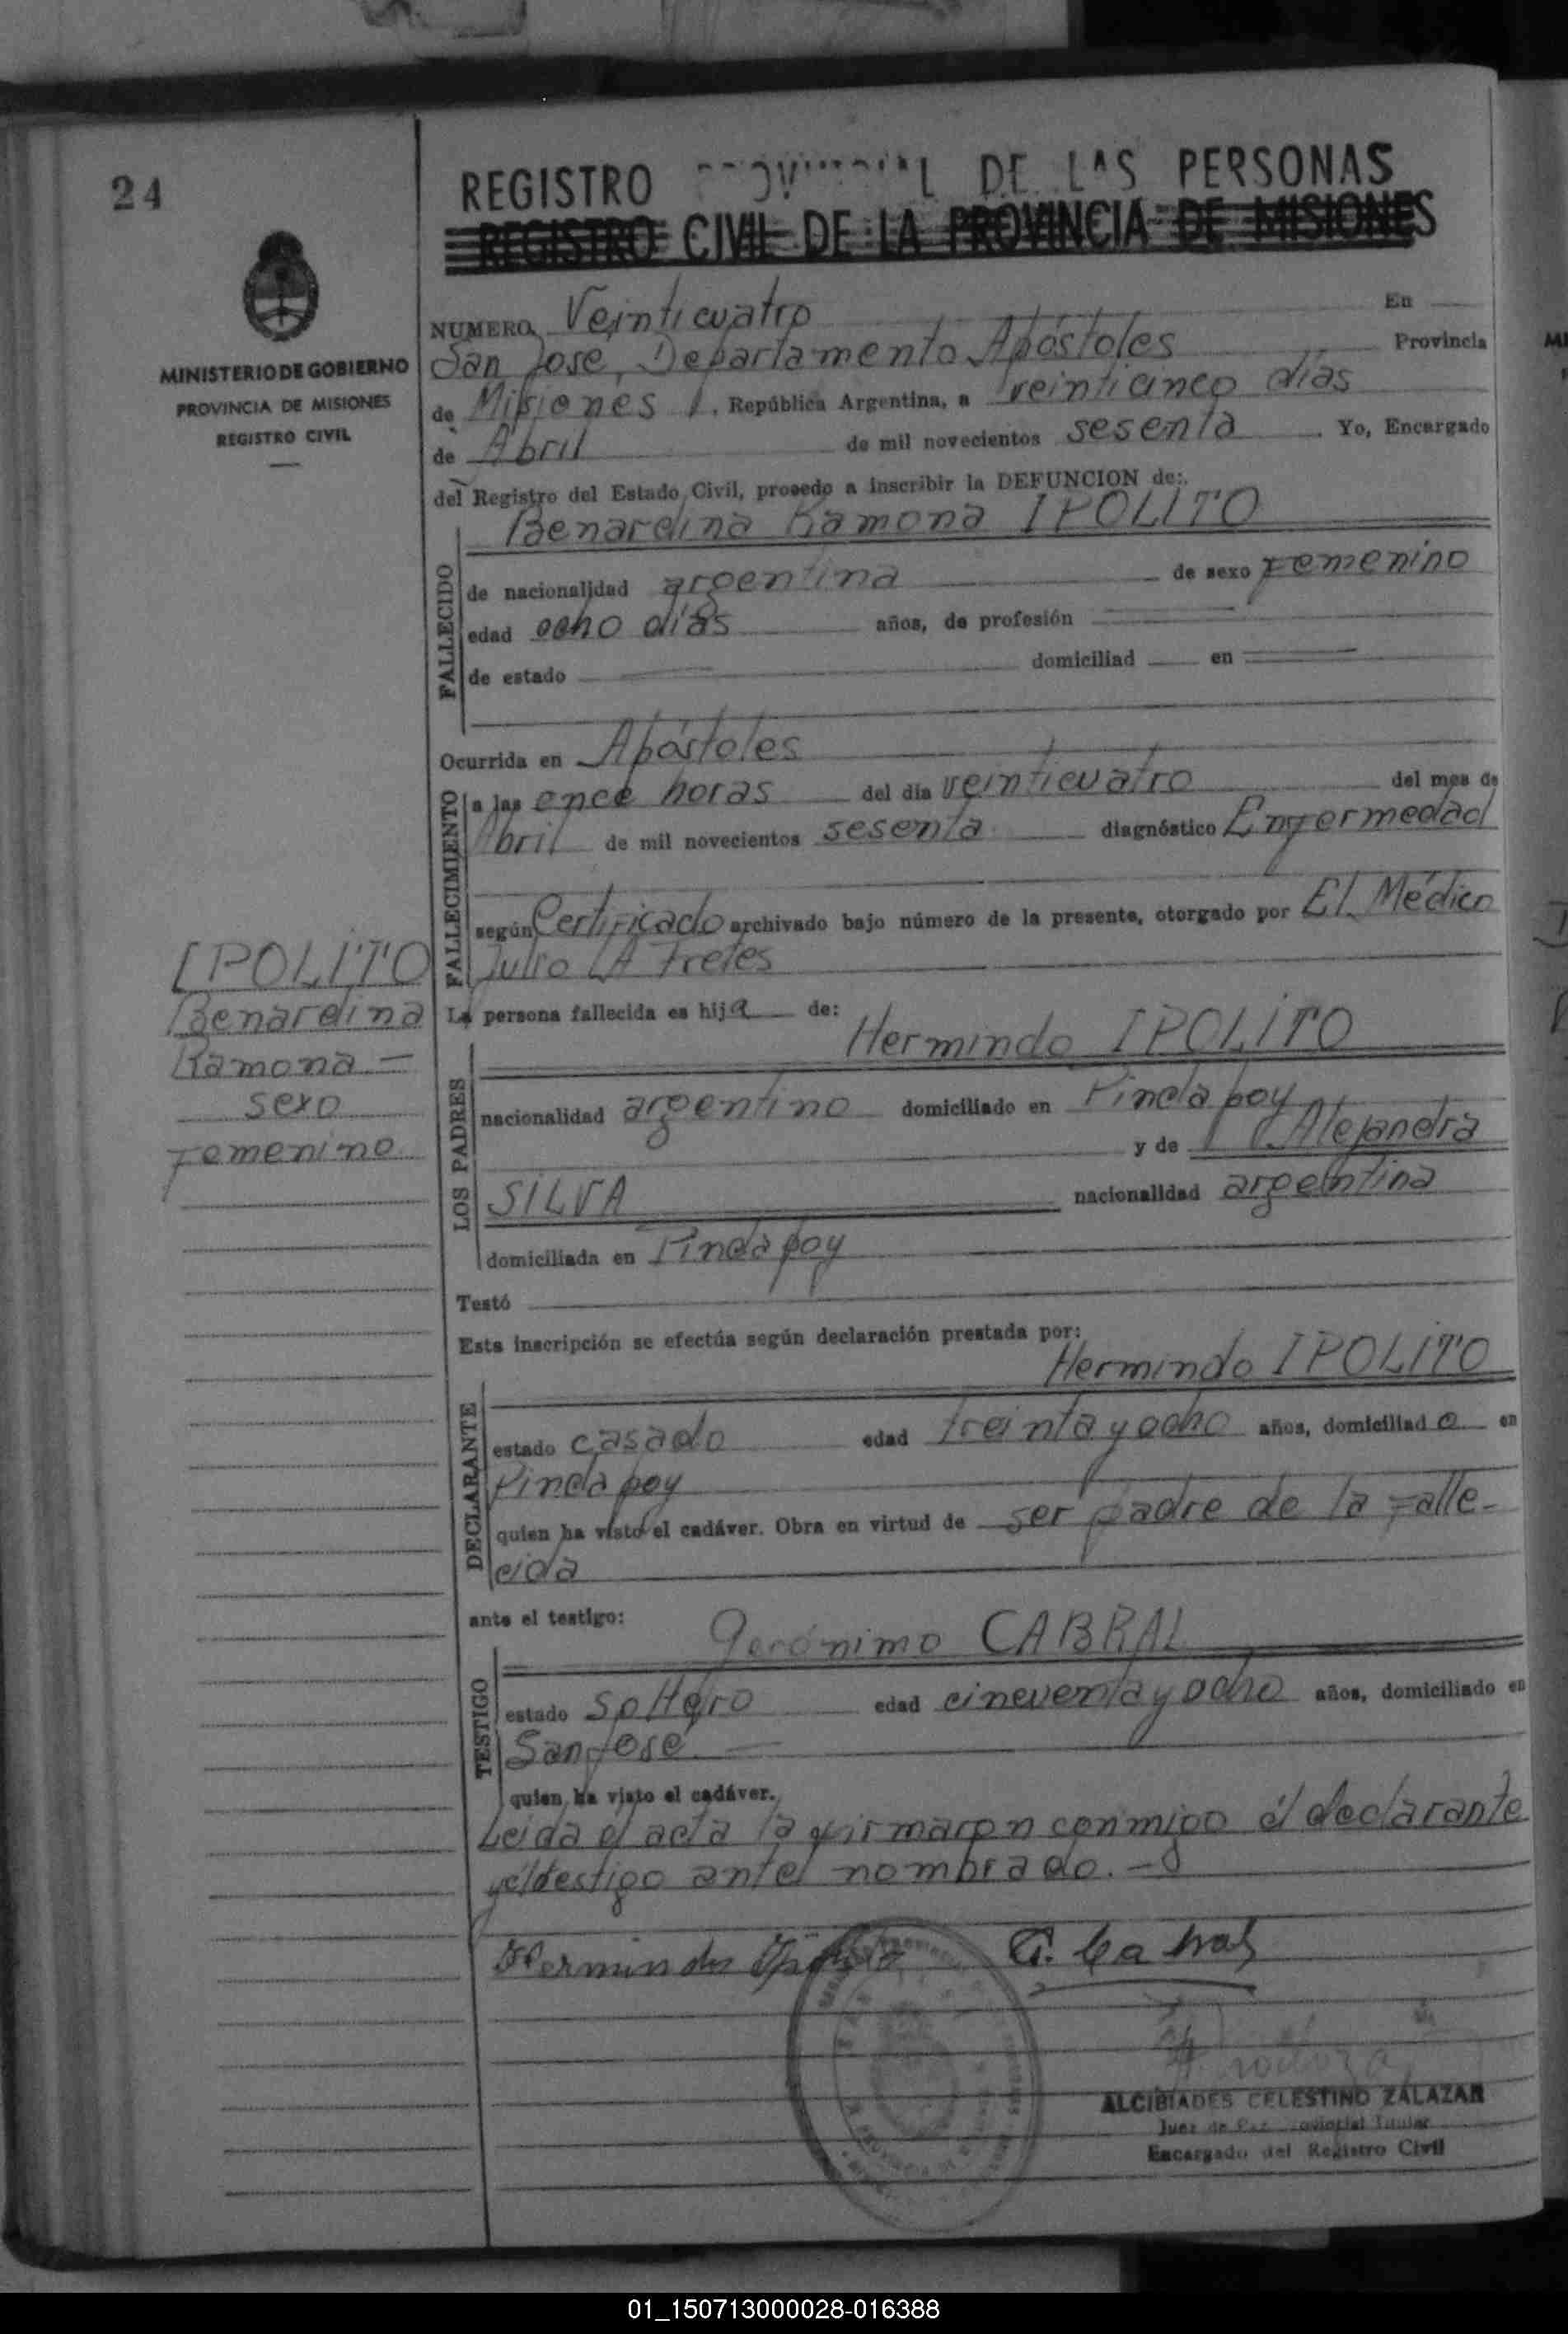 24
REGISTRO PROVINCIAL DE LAS PERSONAS
REGISTRO CIVIL DE LA PROVINCIA DE MISIONES
MINISTERIO DE GOBIERNO
PROVINCIA DE MISIONES
REGISTRO CIVIL
NUMERO Veinticuatro En
San José, Departamento Apóstoles Provincia
de Misiones, República Argentina, a veinticinco días
de Abril de mil novecientos sesenta Yo, Encargado
del Registro del Estado Civil, procedo a inscribir la DEFUNCION de:
Benardina Ramona IPOLITO
FALLECIDO
de nacionalidad argentina de sexo Femenino
edad ocho días años, de profesión
de estado domiciliad en
Ocurrida en Apóstoles
FALLECIMIENTO
a las once horas del día veinticuatro del mes de
Abril de mil novecientos sesenta diagnóstico Enfermedad
según Certificado archivado bajo número de la presente, otorgado por El Médico
Julio A Fretes
IPOLITO
Benardina
Ramona –
sexo
Femenino
La persona fallecida es hija de:
Hermindo IPOLITO
LOS PADRES
nacionalidad argentino domiciliado en Pindapoy
y de Alejandra
SILVA nacionalidad argentina
domiciliada en Pindapoy
Testó
Esta inscripción se efectúa según declaración prestada por:
Hermindo IPOLITO
DECLARANTE
estado casado edad treinta y ocho años, domiciliado en
Pindapoy
quien ha visto el cadáver. Obra en virtud de ser padre de la falle-
cida
ante el testigo:
Gerónimo CABRAL
TESTIGO
estado soltero edad cincuenta y ocho años, domiciliado en
San José
quien ha visto el cadáver.
Leida el acta la firmaron conmigo el declarante
y el testigo ante nombrado.-
Hermindo Ipolito G. Cabral
ALCIBIADES CELESTINO ZALAZAR
Juez de Paz Titular
Encargado del Registro Civil
01_150713000028-016388